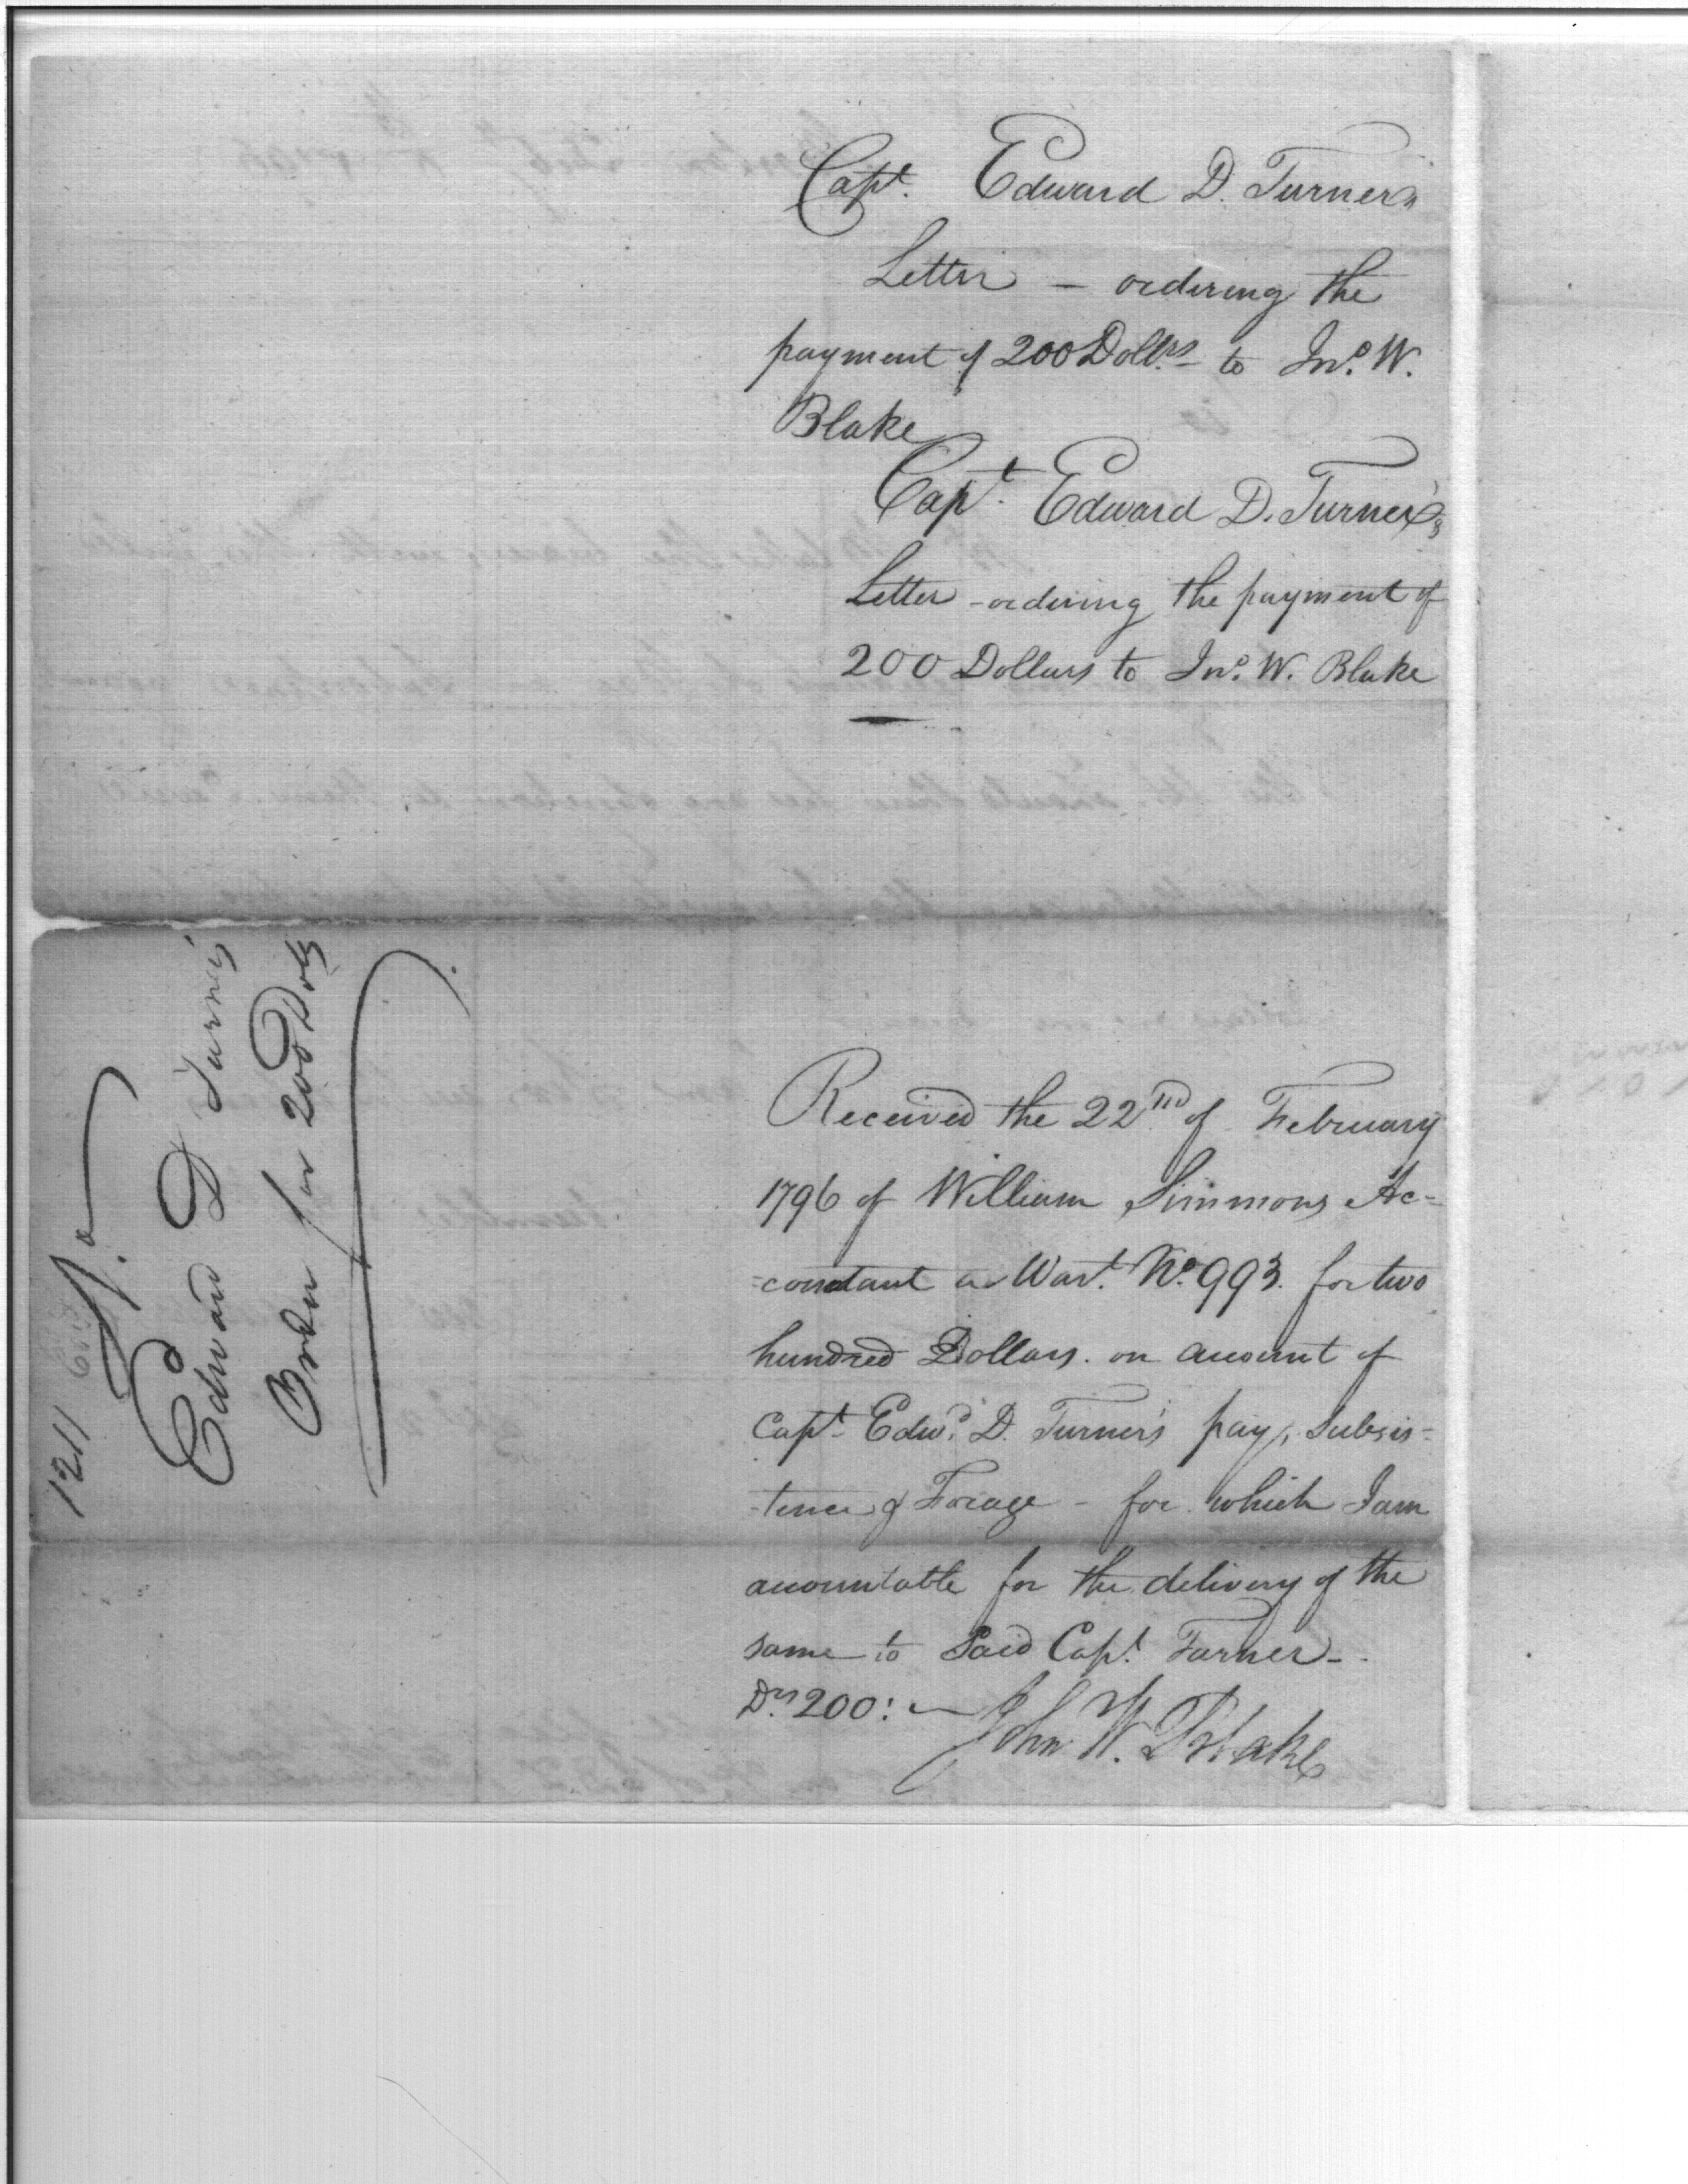 Capt. Edward D. Turner's
Letter – ordering the
payment of 200 Dollrs. to Jno. W.
Blake
Capt. Edward D. Turner's
Letter – ordering the payment of
200 Dollars to Jno. W. Blake
1211
Edward D Turner's
Order for 200 Dolls
Received the 22nd of February
1796 of William Simmons Ac=
=countant a Wart. No. 993. for two
hundred Dollars. on account of
Capt. Edwd. D. Turner's pay, Subsis=
-tence & Forage – for which I am
accountable for the delivery of the
same to Said Capt. Turner –
Drs. 200:
John W. Blake